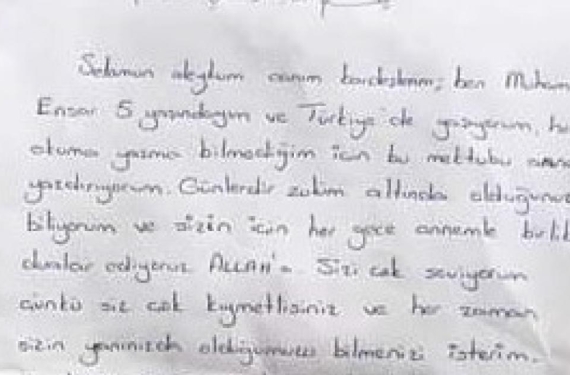 Selamun aleykum canım kardeşlerim; ben Muham
Ensar 5 yaşındayım ve Türkiye'de yaşıyorum,
okuma yazma bilmediğim için bu mektubu
yazdırıyorum. Günlerdir zulüm altında olduğunuz
biliyorum ve sizin için her gece annemle birlik
dualar ediyoruz ALLAH'a. Sizi çok seviyorum
çünkü siz çok kıymetlisiniz ve her zaman
sizin yanınızda olduğumuzu bilmenizi isterim.